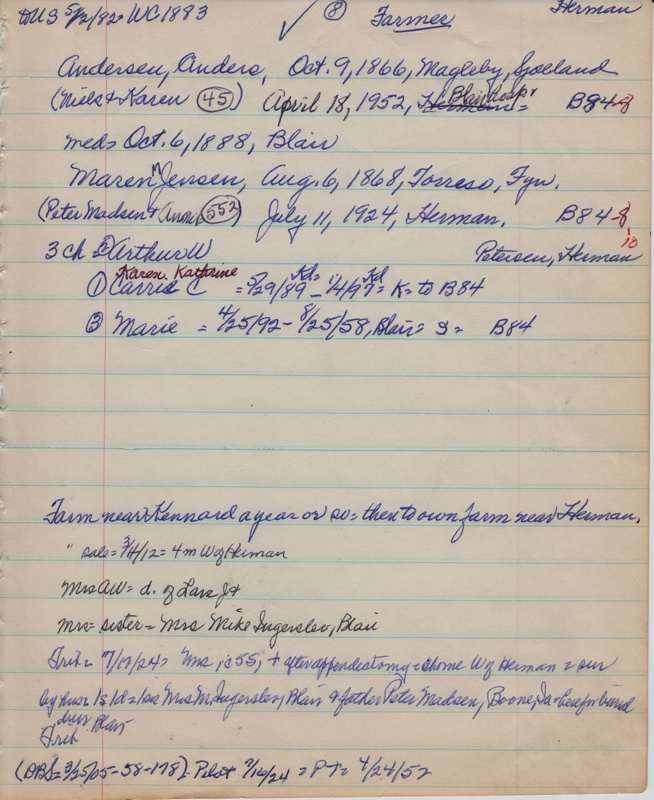 to US 5/2/82= WC 1883 ✓ ⑧ Farmer Herman
Andersen, Anders, Oct. 9, 1866, Magleby, Sjoelland
(Niels + Karen (45) April 18, 1952, Herman= Blair hosp B84-8
med= Oct. 6, 1888, Blair
Maren M Jensen, Aug. 6, 1868, Torreso, Fyn.
(Peter Madsen + (552) July 11, 1924, Herman. B84-8
10
3 ch = Arthur W Petersen, Herman
Karen Kathrine Kd Kd
① Carrie C = 5/29/89 - 1/4/97= K= to B84
③ Marie = 4/25/92 - 8/25/58, Blair= S= B84
Farm near Kennard a year or so= then to own farm near Herman.
" sale= 3/4/12= 4 m W of Herman
Mrs AW= d. of Lars J+
Mrs= sister= Mrs Mike Ingerslev, Blair
Trib= 7/17/24= Mrs, ic 55, + after appendectomy= @home W of Herman = sur
by husr 1s 1d= sis Mrs M. Ingerslev, Blair + father Peter Madsen, Boone, Ia= buried
Blair
Trib
(DBS= 3/25/05-58-178). Pilot 7/16/24 = PT= 4/24/52